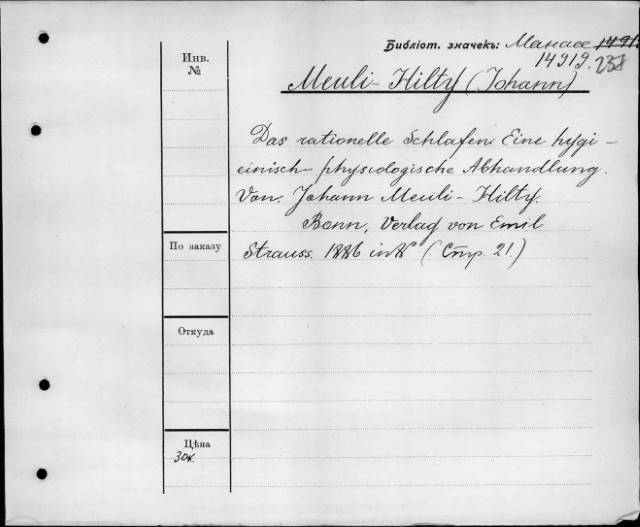 Библіот. значекъ: Манасе
14919. 238
Инв.
№
Meuli-Hilty (Johann)
Das rationelle Schlafen. Eine hygi-
einisch-physiologische Abhandlung.
Von. Johann Meuli-Hilty.
Bonn, Verlag von Emil
Strauss. 1886 in 8° (Стр. 21.)
По заказу
Откуда
Цѣна
30к.